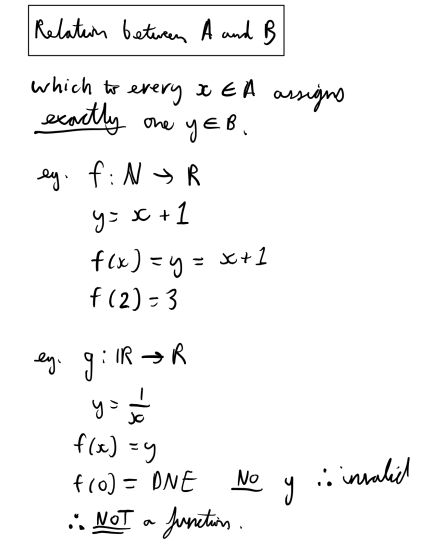 Relation between A and B
which to every x ∈ A assigns
exactly one y ∈ B.
eg. f : N → R
y = x + 1
f(x) = y = x + 1
f(2) = 3
eg. g : ℝ → R
y = 1/x
f(x) = y
f(0) = DNE No y ∴ invalid
∴ NOT a function.